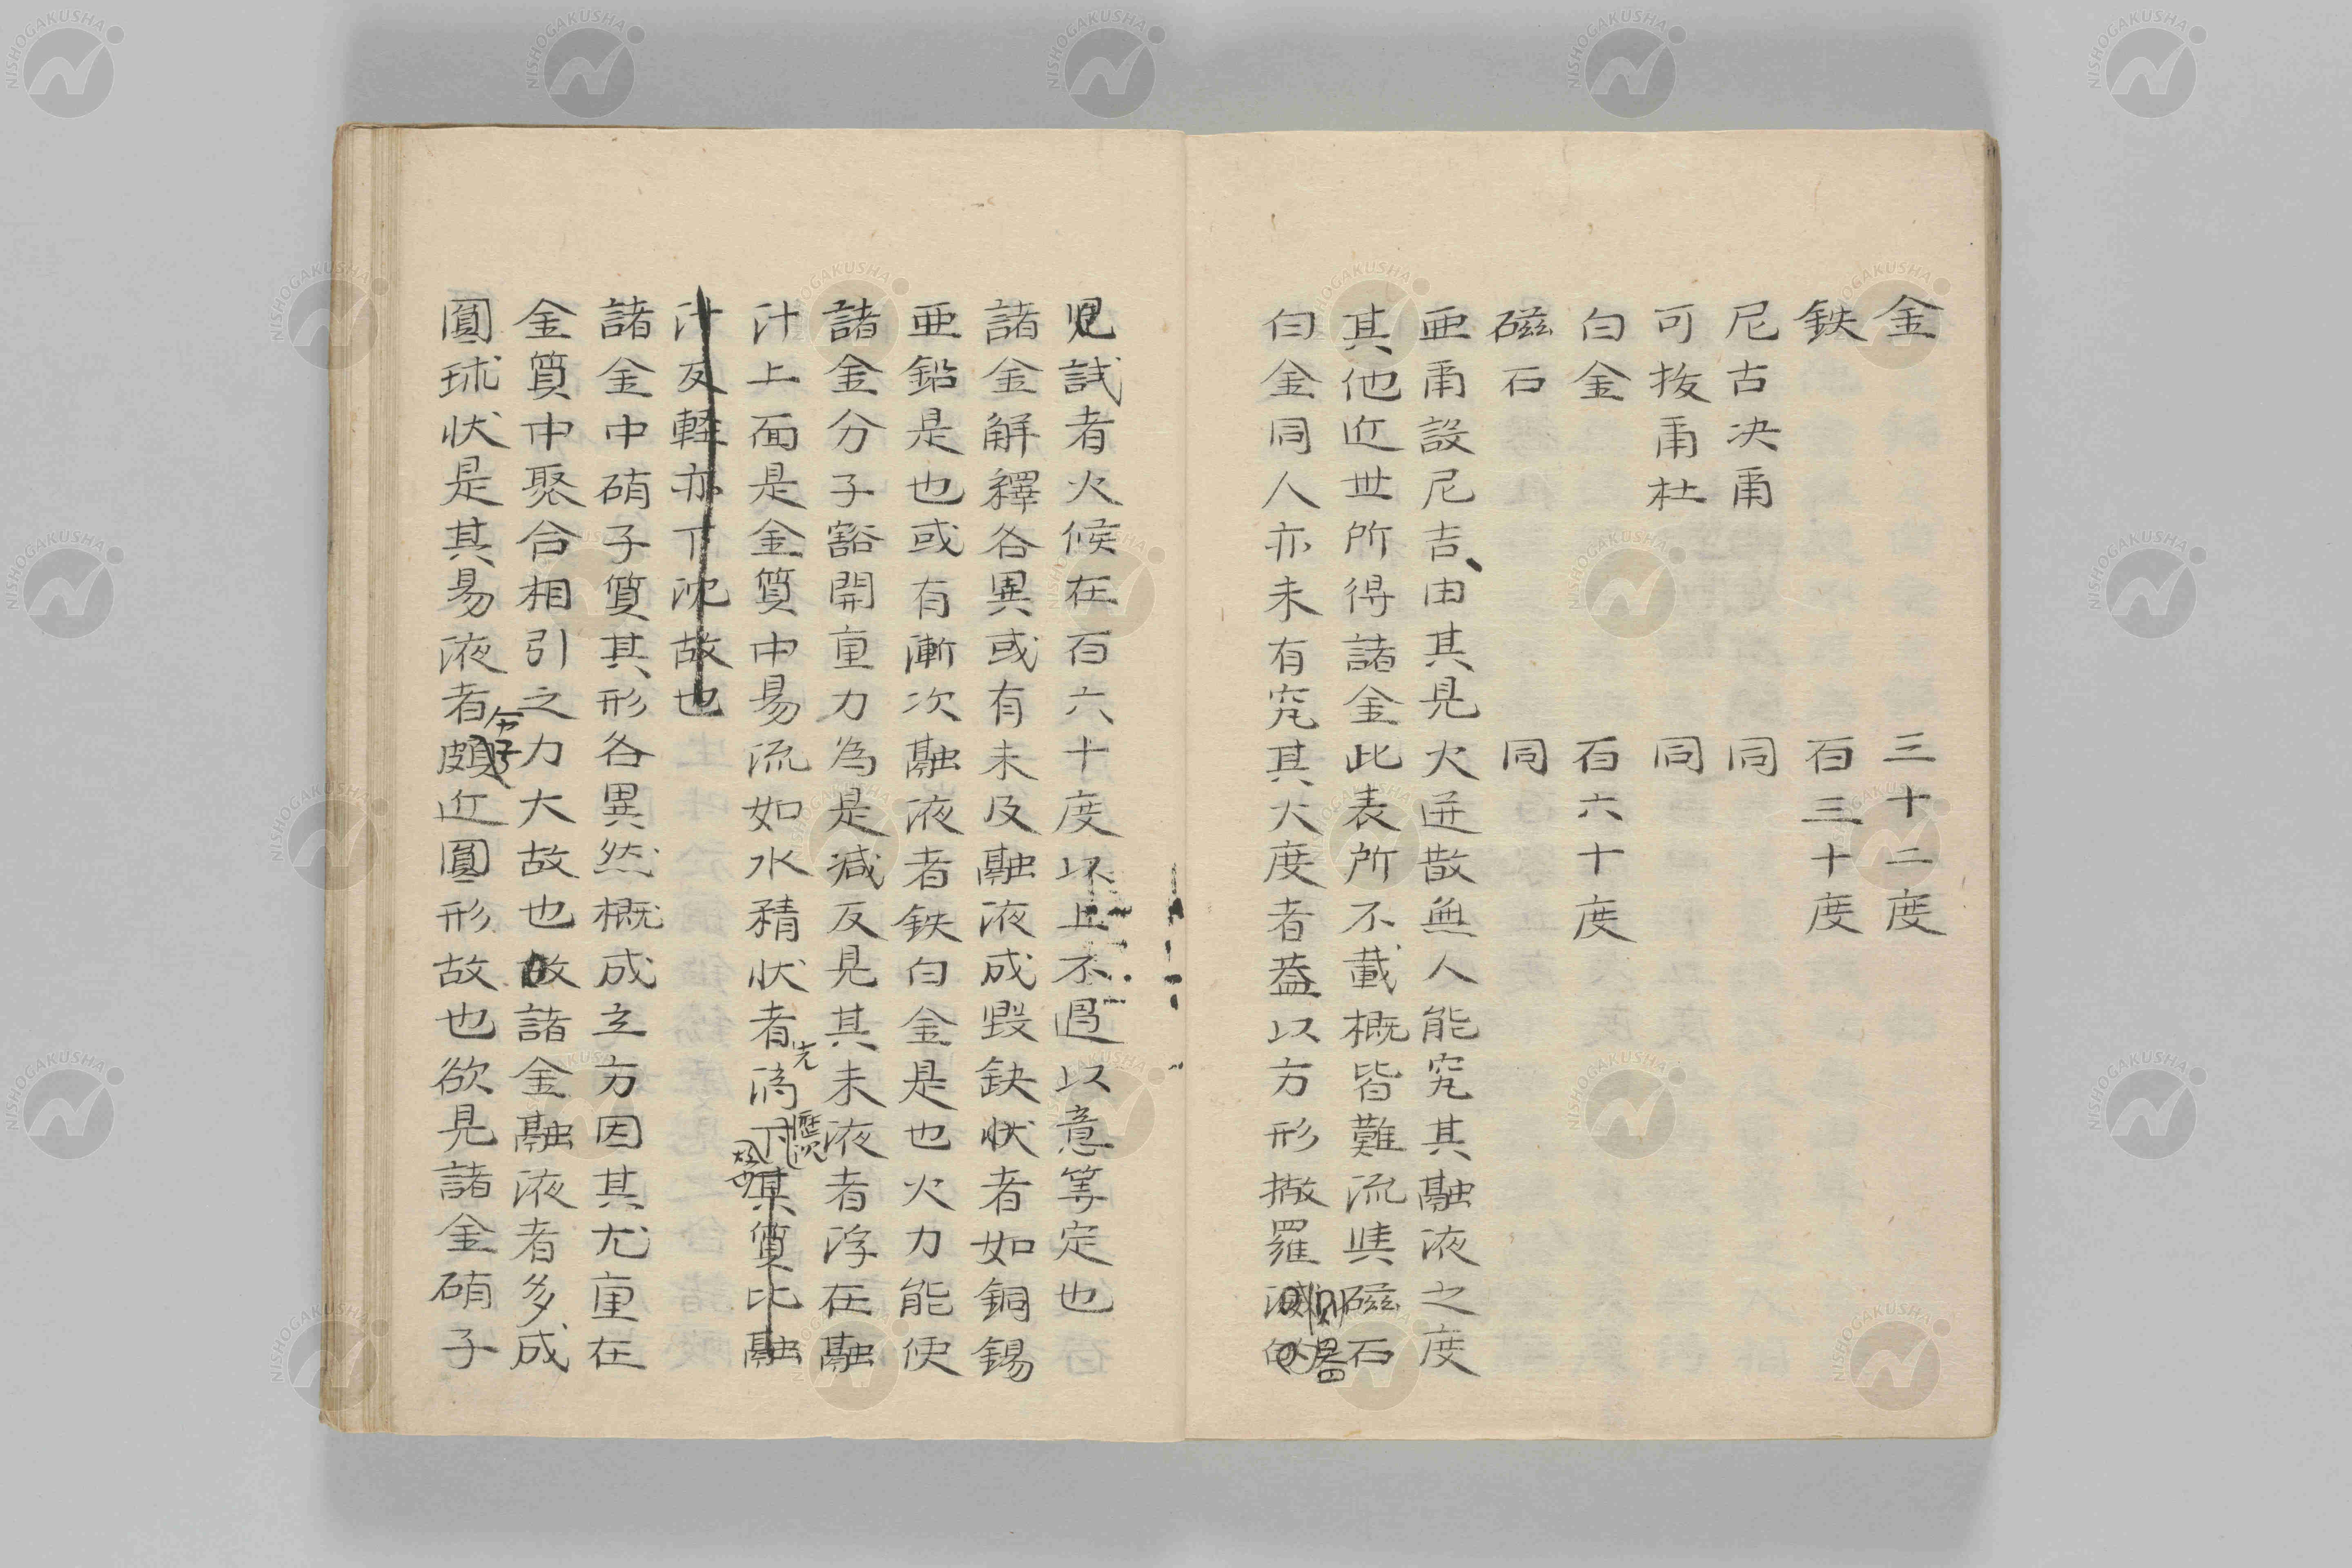 金 三十二度
鉄 百三十度
尼古决甬 同
可抜甬杜 同
白金 百六十度
磁石 同
亜甬設尼吉由其見火迸散無人能究其融液之度
其他近世所得諸金此表所不載概皆難流㒵磁石
白金同人亦未有究其火度者葢以方形撒羅
児試者火候在百六十度以止不過以意筭定也
諸金解釋各異或有未及融液成毀鈌状者如銅錫
亜鉛是也或有漸次融液者鉄白金是也火力能使
諸金分子豁開重力為是减反見其未液者浮在融
汁上面是金質中易流如水精状者先滴下其質比融
汁反軽亦下沈故也
諸金中硝子質其形各異然概成立方因其尤重在
金質中聚合相引之力大故也故諸金融液者多成
圓球状是其易液者頗近圓形故也欲見諸金硝子
NISHOGAKUSHA